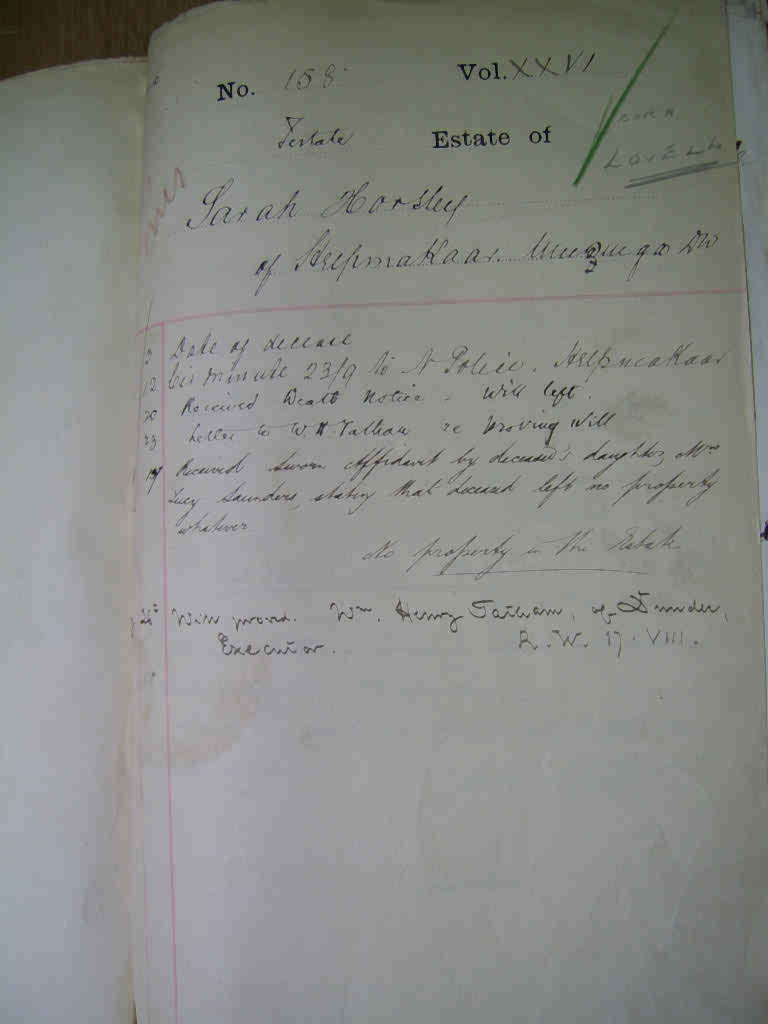 No. 158 Vol. XXVI
Testate Estate of
LOVELL
Sarah Horsley
of Helpmakaar. Umsinga Dn
3 Date of decease
12 Cir Minute 23/9 to N Police. Helpmakaar
20 Received Death Notice - Will left.
23 Letter to W H Tatham re proving will
Received Sworn Affidavit by deceased's daughter, Mrs
Lucy Saunders, stating that deceased left no property
whatever
No property in the Estate
Will proved. Wm. Henry Tatham, of Dundee,
Executor. R. W. 17. VIII.